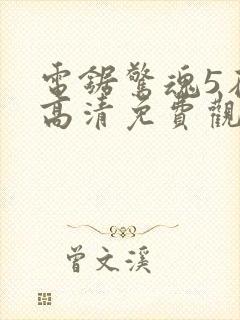 電鋸驚魂5
高清免費觀
曾文溪